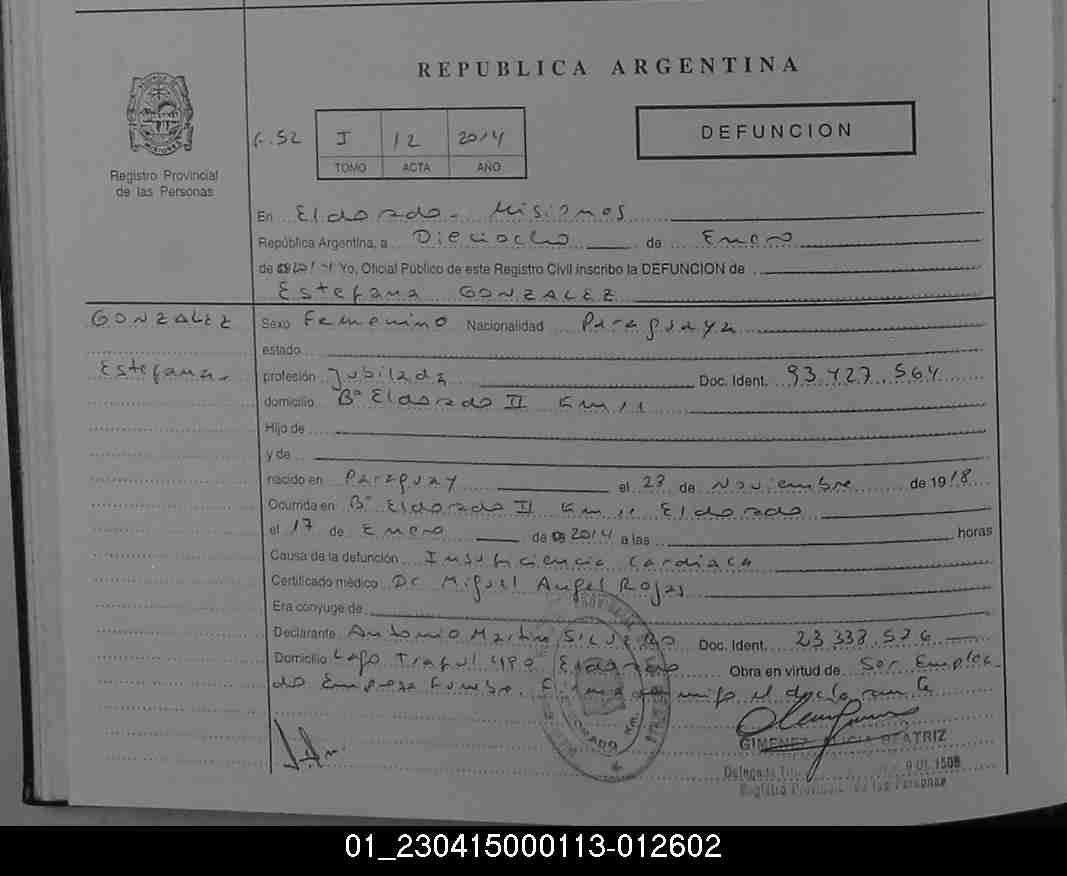 REPUBLICA ARGENTINA
DEFUNCION
I 12 2014
TOMO ACTA AÑO
Registro Provincial
de las Personas
En Eldorado - Misiones
República Argentina, a Dieciocho de Enero
de 2014 Yo, Oficial Público de este Registro Civil inscribo la DEFUNCION de
Estefana GONZALEZ
GONZALEZ
Estefana
Sexo Femenino Nacionalidad Paraguaya
estado
profesión Jubilada Doc. Ident. 93.427.564
domicilio Bº Eldorado II Km 11
Hijo de
y de
nacido en Paraguay el 23 de Noviembre de 1918
Ocurrida en Bº Eldorado II Km 11 Eldorado
el 17 de Enero de 2014 a las horas
Causa de la defunción Insuficiencia Cardiaca
Certificado médico Dr Miguel Angel Rojas
Era conyuge de
Declarante Antonio Doc. Ident. 23.333.526
Domicilio Lago Eldorado Obra en virtud de Ser Emplea-
do Empresa Funebre. conmigo el declarante
GIMENEZ ALICIA BEATRIZ
Registro Provincial de las Personas
01_230415000113-012602